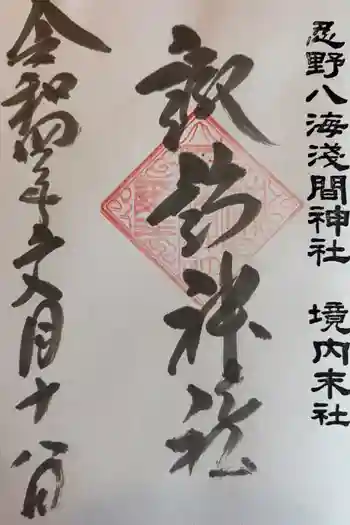 忍野八海淺間神社　境内末社
諏訪神社
令和四年五月十八日